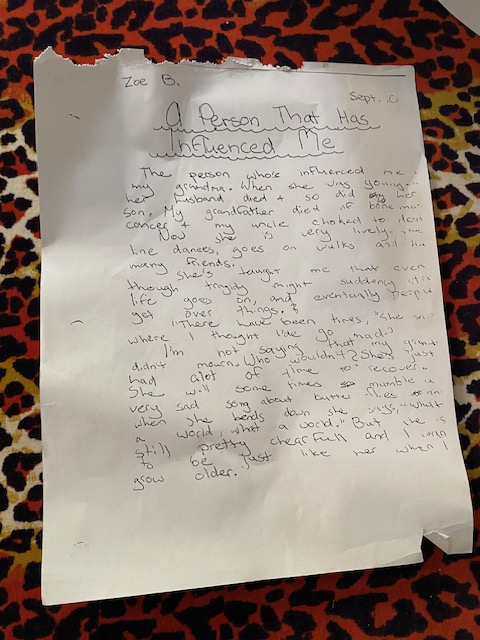 Zoe B.
Sept.
A Person That Has
Influenced Me
The person who's influenced me
my grandma. When she was young
her husband died + so did her
son. My grandfather died of bone
cancer + my uncle choked to
Now she is very lively.
line dances, goes on walks and
many friends.
She's taught me that even
though tragidy might suddenly
life goes on, and eventually people
get over things.
"There have been times," she
where I thought I'de go mad."
I'm not saying that my
didn't mourn. Who wouldn't? She's just
had alot of time to recover.
She will some times mumble
very sad song about butter flies
when she bends down she says, "what
a world, what a world." But she is
still pretty chearfull and I
to be just like her when I
grow older.